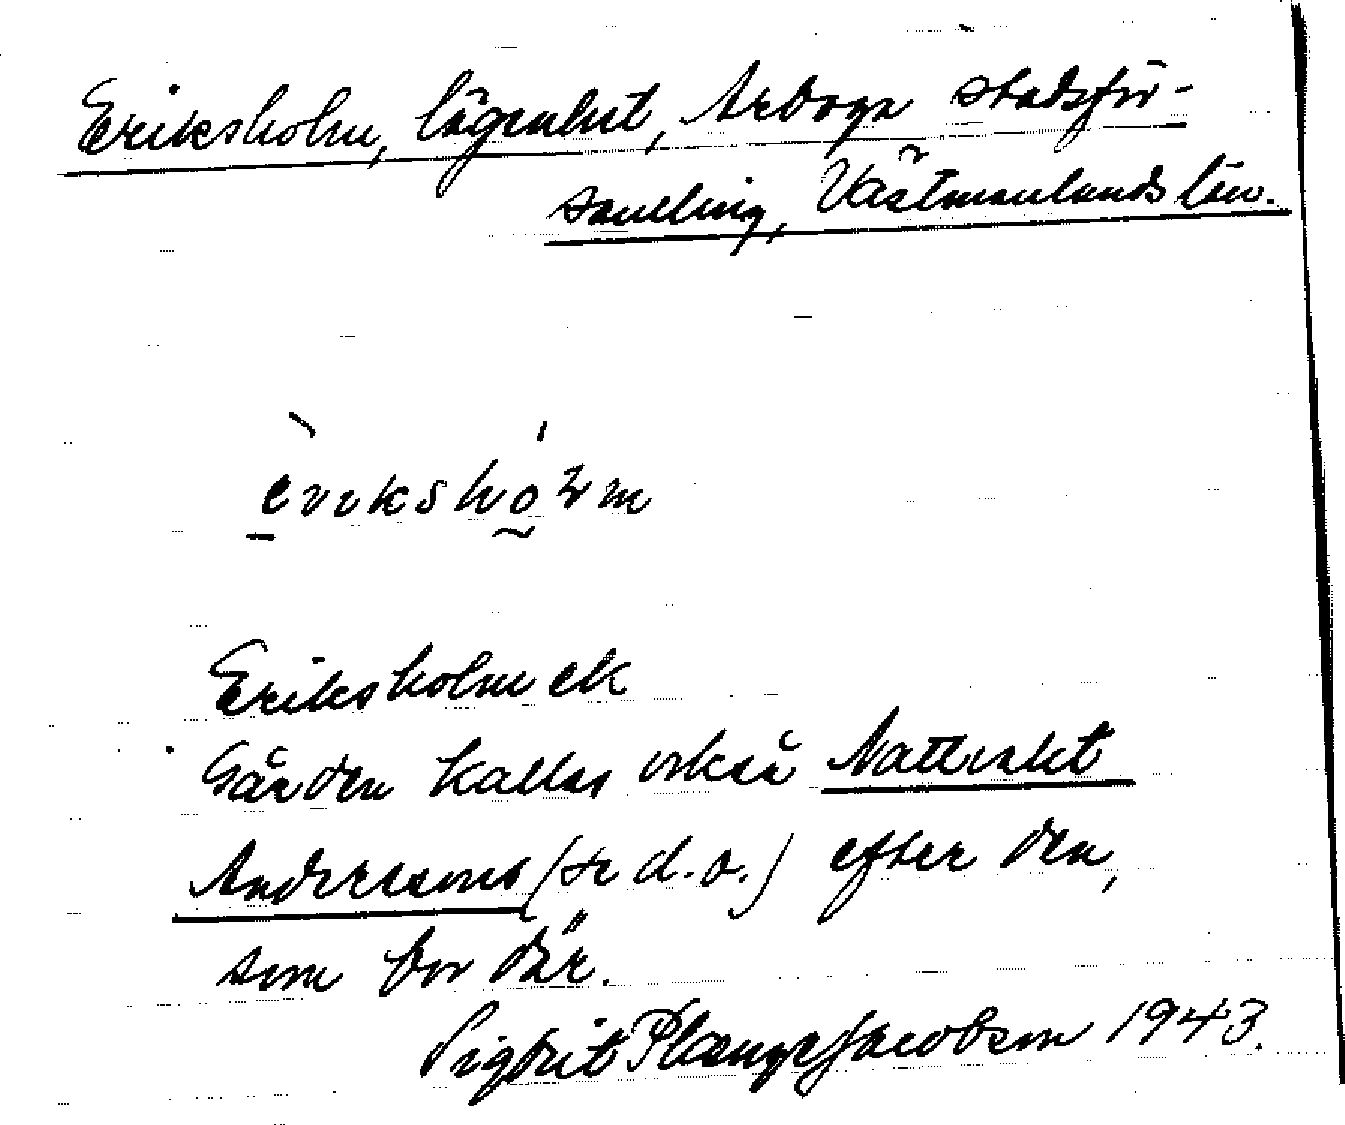 Eriksholm, lägenhet, Arboga stadsför-
samling, Västmanlands län.
èrikshólm
Eriksholm ek
Gården kallas också Nattvakt
Anderssons (se d.o.) efter den,
som bor där.
Sigbrit Plænge Jacobson 1943.